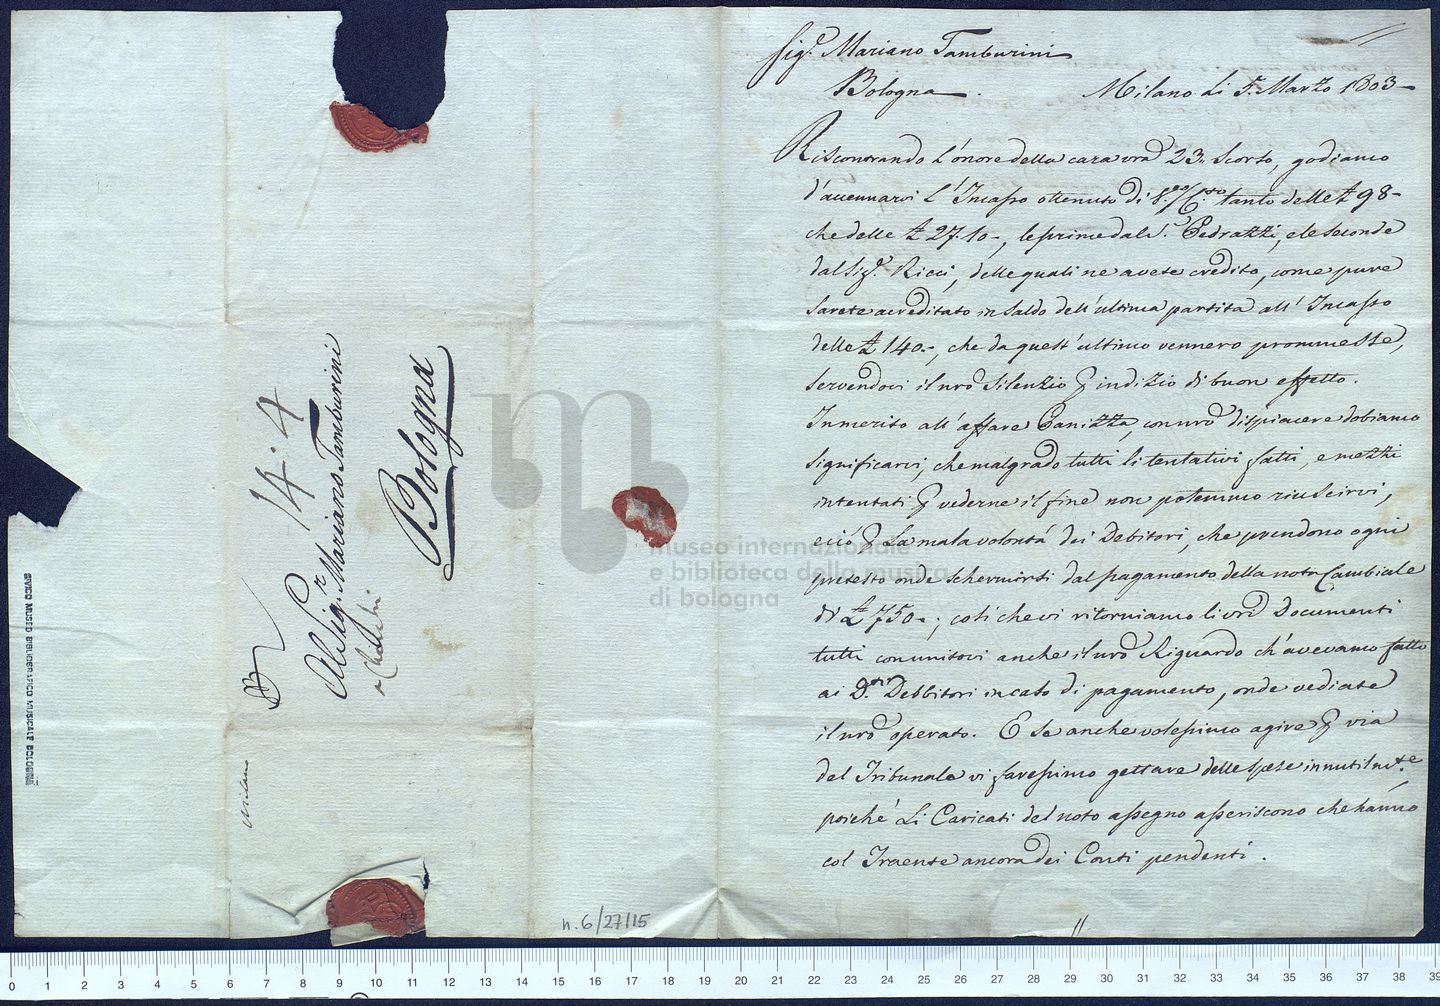 Sig.r Mariano Tamburini
Bologna.
Milano li 5. Marzo 1803
Riscontrando l'onore della cara vrã 23. Scorso, godiamo
d'accennarvi l'Incasso ottenuto di tanto delle £ 98-
che delle £ 27.10-, le prime dal S.r Pedrazzi, e le seconde
dal Sig.r Ricci, delle quali ne avete credito, come pure
sarete acreditato in saldo dell'ultima partita all'Incasso
delle £ 140.-, che da quest'ultimo vennero prommesse,
servendovi il nrõ Silenzio p indizio di buon effetto.
Inmerito all'affare Canizza, con nrõ dispiacere dobiamo
significarvi, che malgrado tutti li tentativi fatti, e mezzi
intentati p vederne il fine non potemmo riuscirvi,
e ciò p La mala volontá dei Debitori, che prendono ogni
pretesto onde schermirsi dal pagamento della nota Cambiale
di £ 750-; così che vi ritorniamo li vrĩ Documenti
tutti comunitovi anche il nrõ Riguardo ch'avevamo fatto
ai D.ti Debbitori in caso di pagamento, onde vediate
il nrõ operato. E se anche volessimo agire p via
del Tribunale vi faressimo gettare delle spese innutilm.te
poiché Li Caricati del noto assegno asseriscono che hanno
col Traente ancora dei Conti pendenti.
14:4
Al Sig.r Mariano Tamburini
Bologna
Milano
CIVICO MUSEO BIBLIOGRAFICO MUSICALE BOLOGNA
n. 6/27/15
m
museo internazionale
e biblioteca della musica
di bologna
0 1 2 3 4 5 6 7 8 9 10 11 12 13 14 15 16 17 18 19 20 21 22 23 24 25 26 27 28 29 30 31 32 33 34 35 36 37 38 39